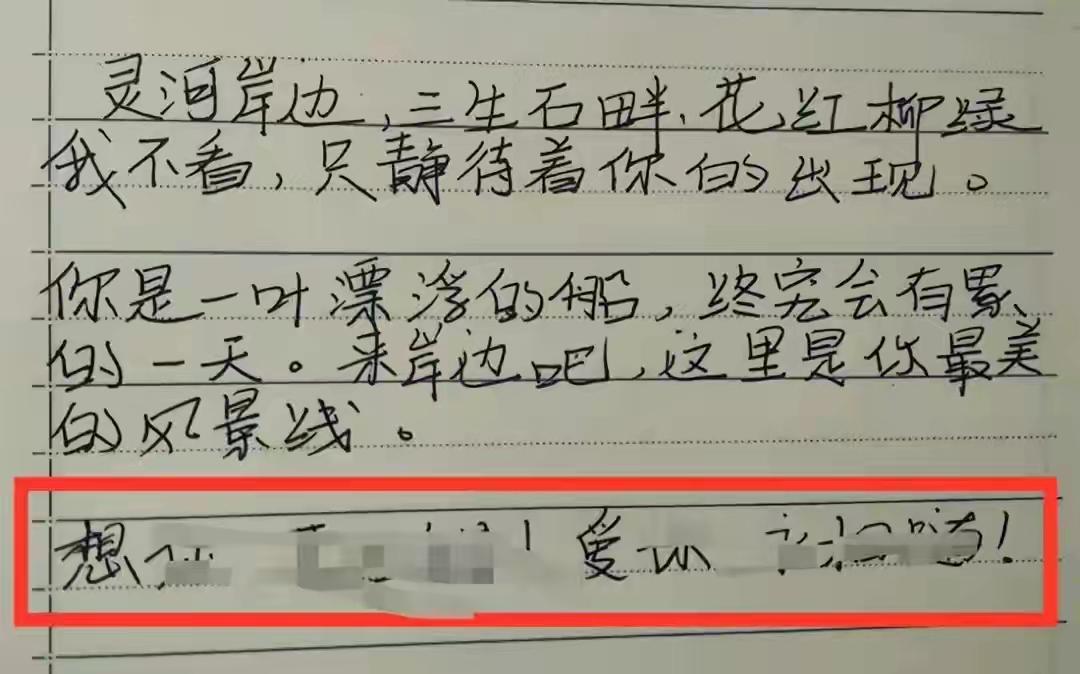 灵河岸边，三生石畔，花红柳绿
我不看，只静待着你的出现。
你是一叶漂浮的船，终究会有累
的一天。来岸边吧，这里是你最美
的风景线。
想 爱 ！